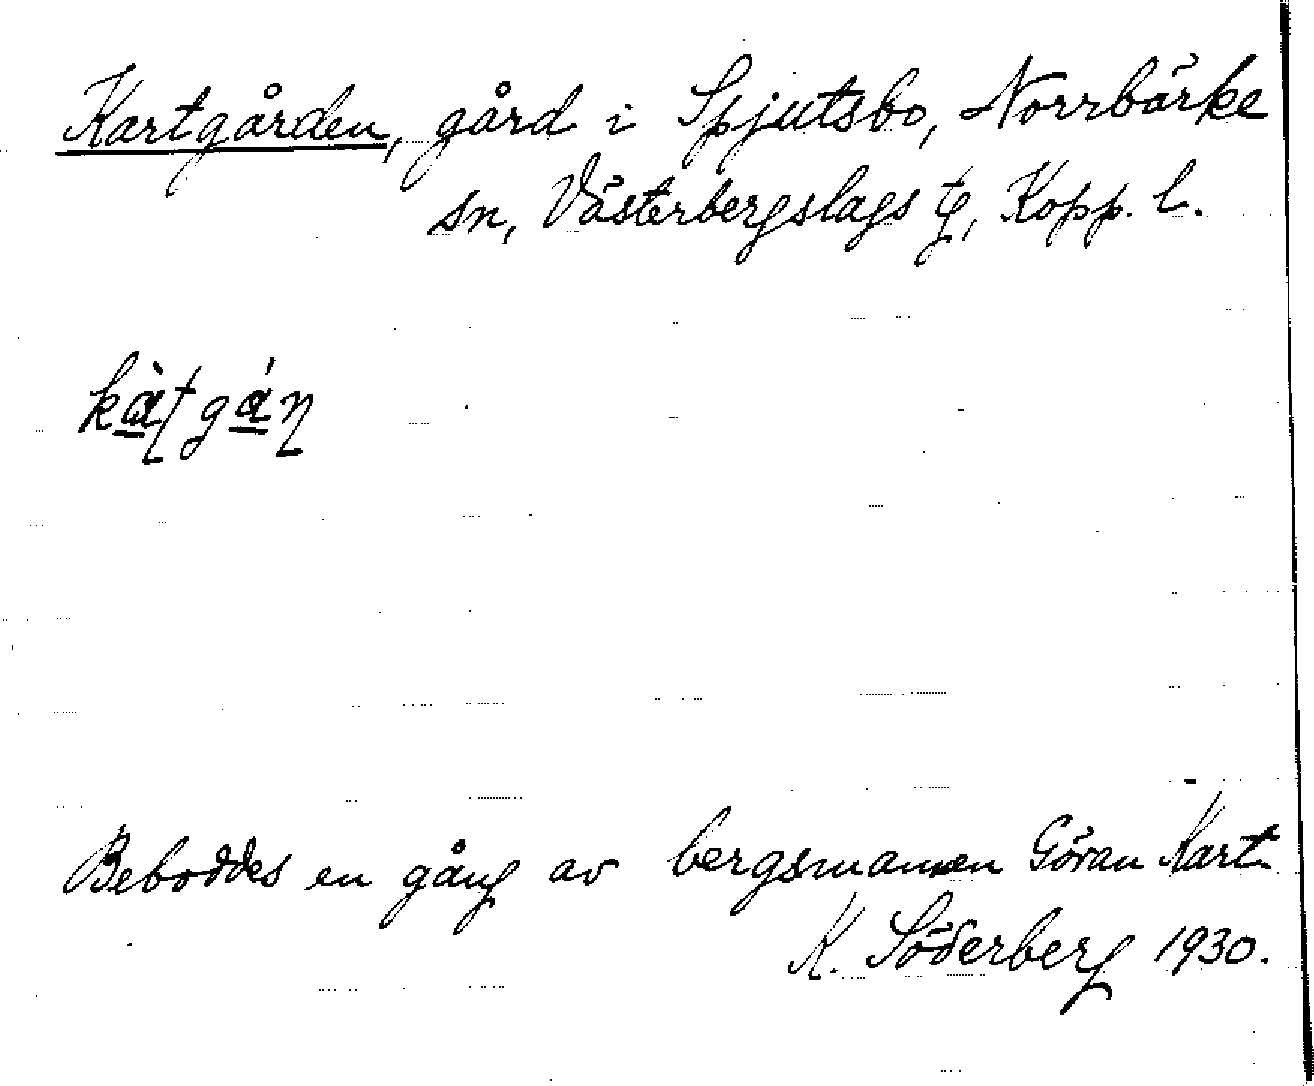 Kartgården, gård i Spjutsbo, Norrbärke
sn, Västerbergslags tg, Kopp. l.
kàʈgáɳ
Beboddes en gång av bergsmannen Göran Kart.
K. Söderberg 1930.